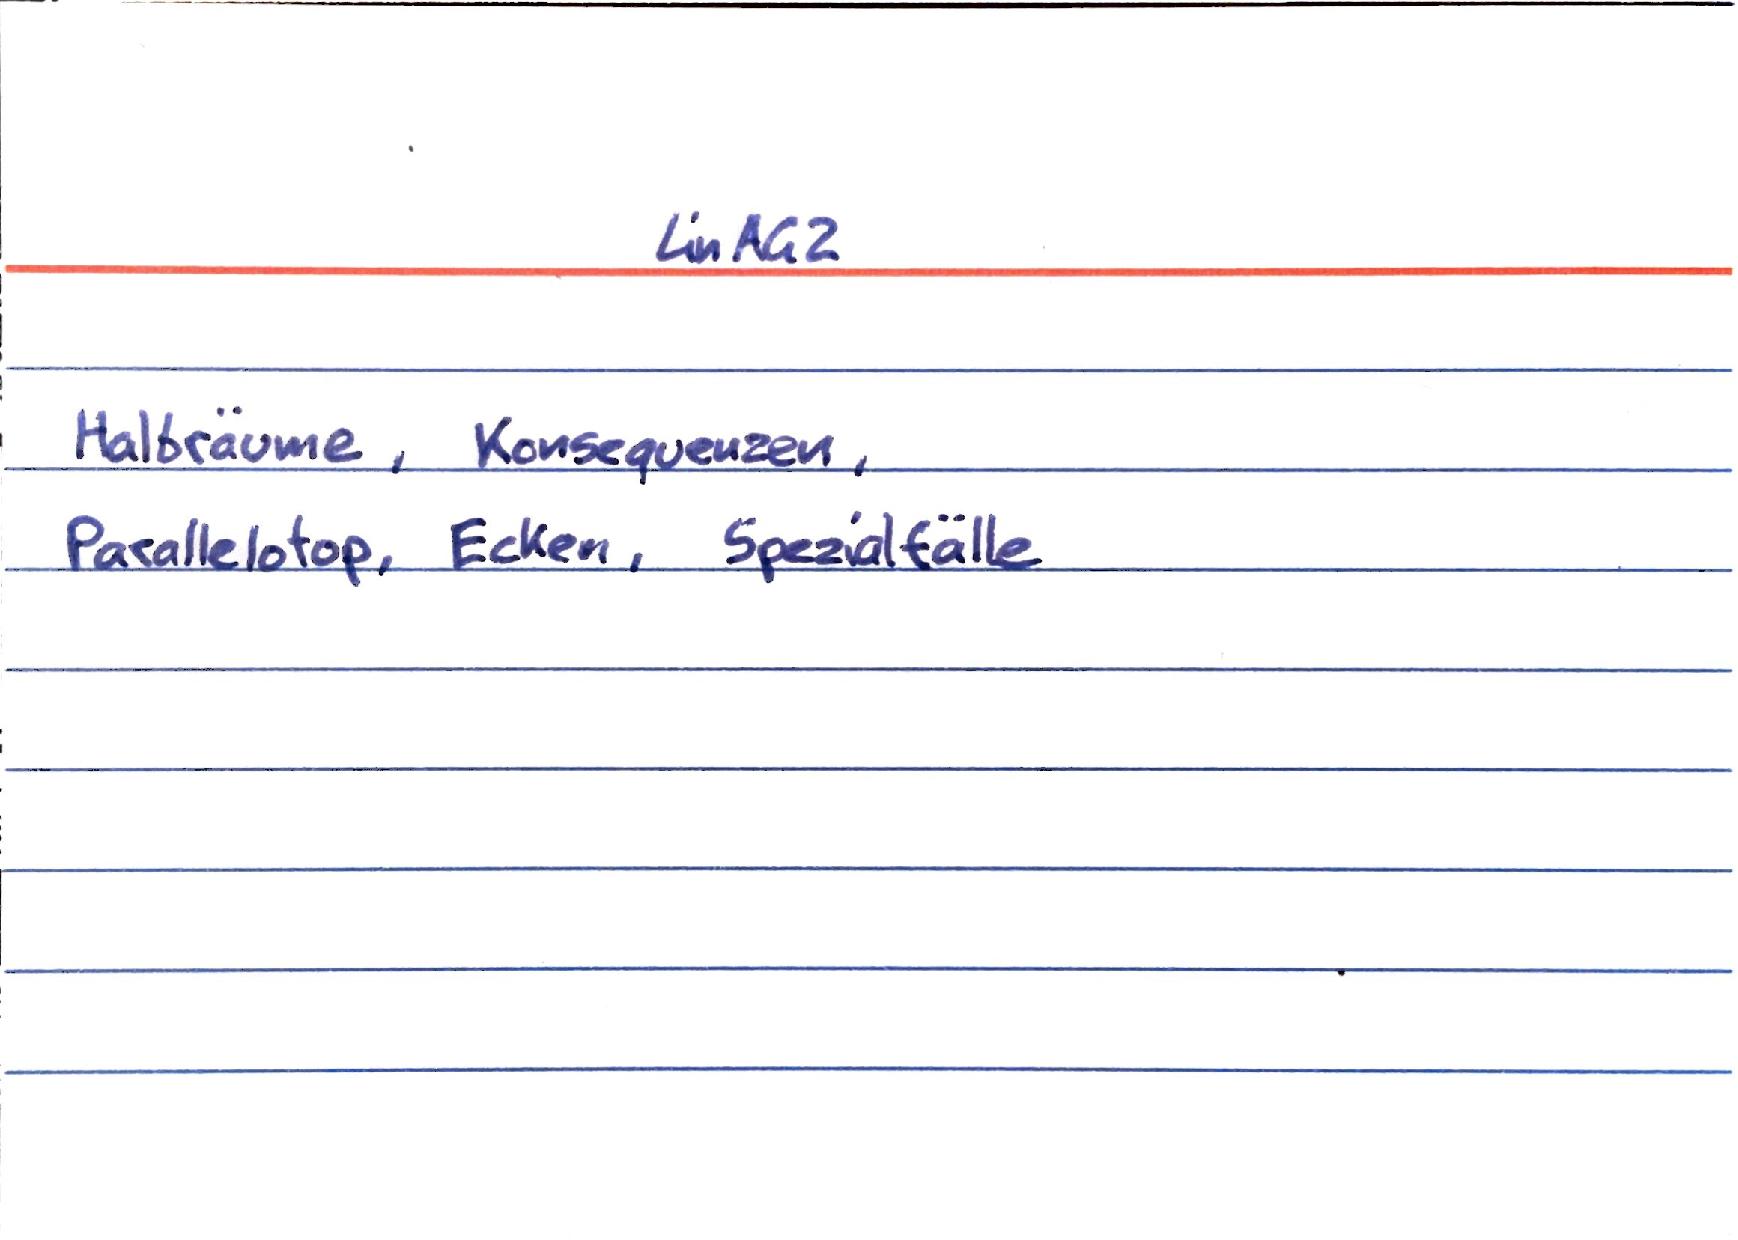 LinAG2
Halbräume, Konsequenzen,
Parallelotop, Ecken, Spezialfälle